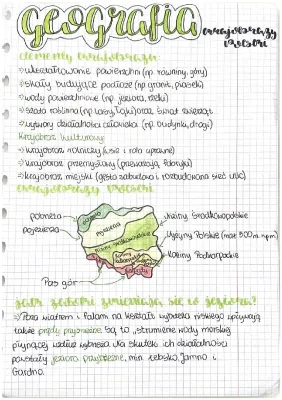 GEOGRAFIA
krajobrazy Polski
elementy krajobrazu
ukształtowanie powierzchni (np. równiny, góry)
skały budujące podłoże (np. granit, piasek)
wody powierzchniowe (np. jeziora, rzeki)
szata roślinna (np. lasy, łąki) oraz świat zwierząt
wytwory działalności człowieka (np. budynki, drogi)
krajobraz kulturowy
krajobraz rolniczy (wsie i role uprawne)
krajobraz przemysłowy (przeważają fabryki)
krajobraz miejski (gęsta zabudowa i rozbudowana sieć ulic)
krajobrazy Polski
pobrzeża
pojezierza
Pas gór
Niziny Środkowopolskie
Wyżyny Polskie (max 500 m n.p.m)
Kotliny Podkarpackie
Jak zatoki zmieniają się w jeziora?
Poza wiatrem i falami na kształt wybrzeża niskiego wpływają
także prądy przybrzeżne. Są to „strumienie wody morskiej
płynącej wzdłuż wybrzeża. Na skutek ich działalności
powstały jeziora przybrzeżne, min. Łebsko, Jamno i
Gardno.